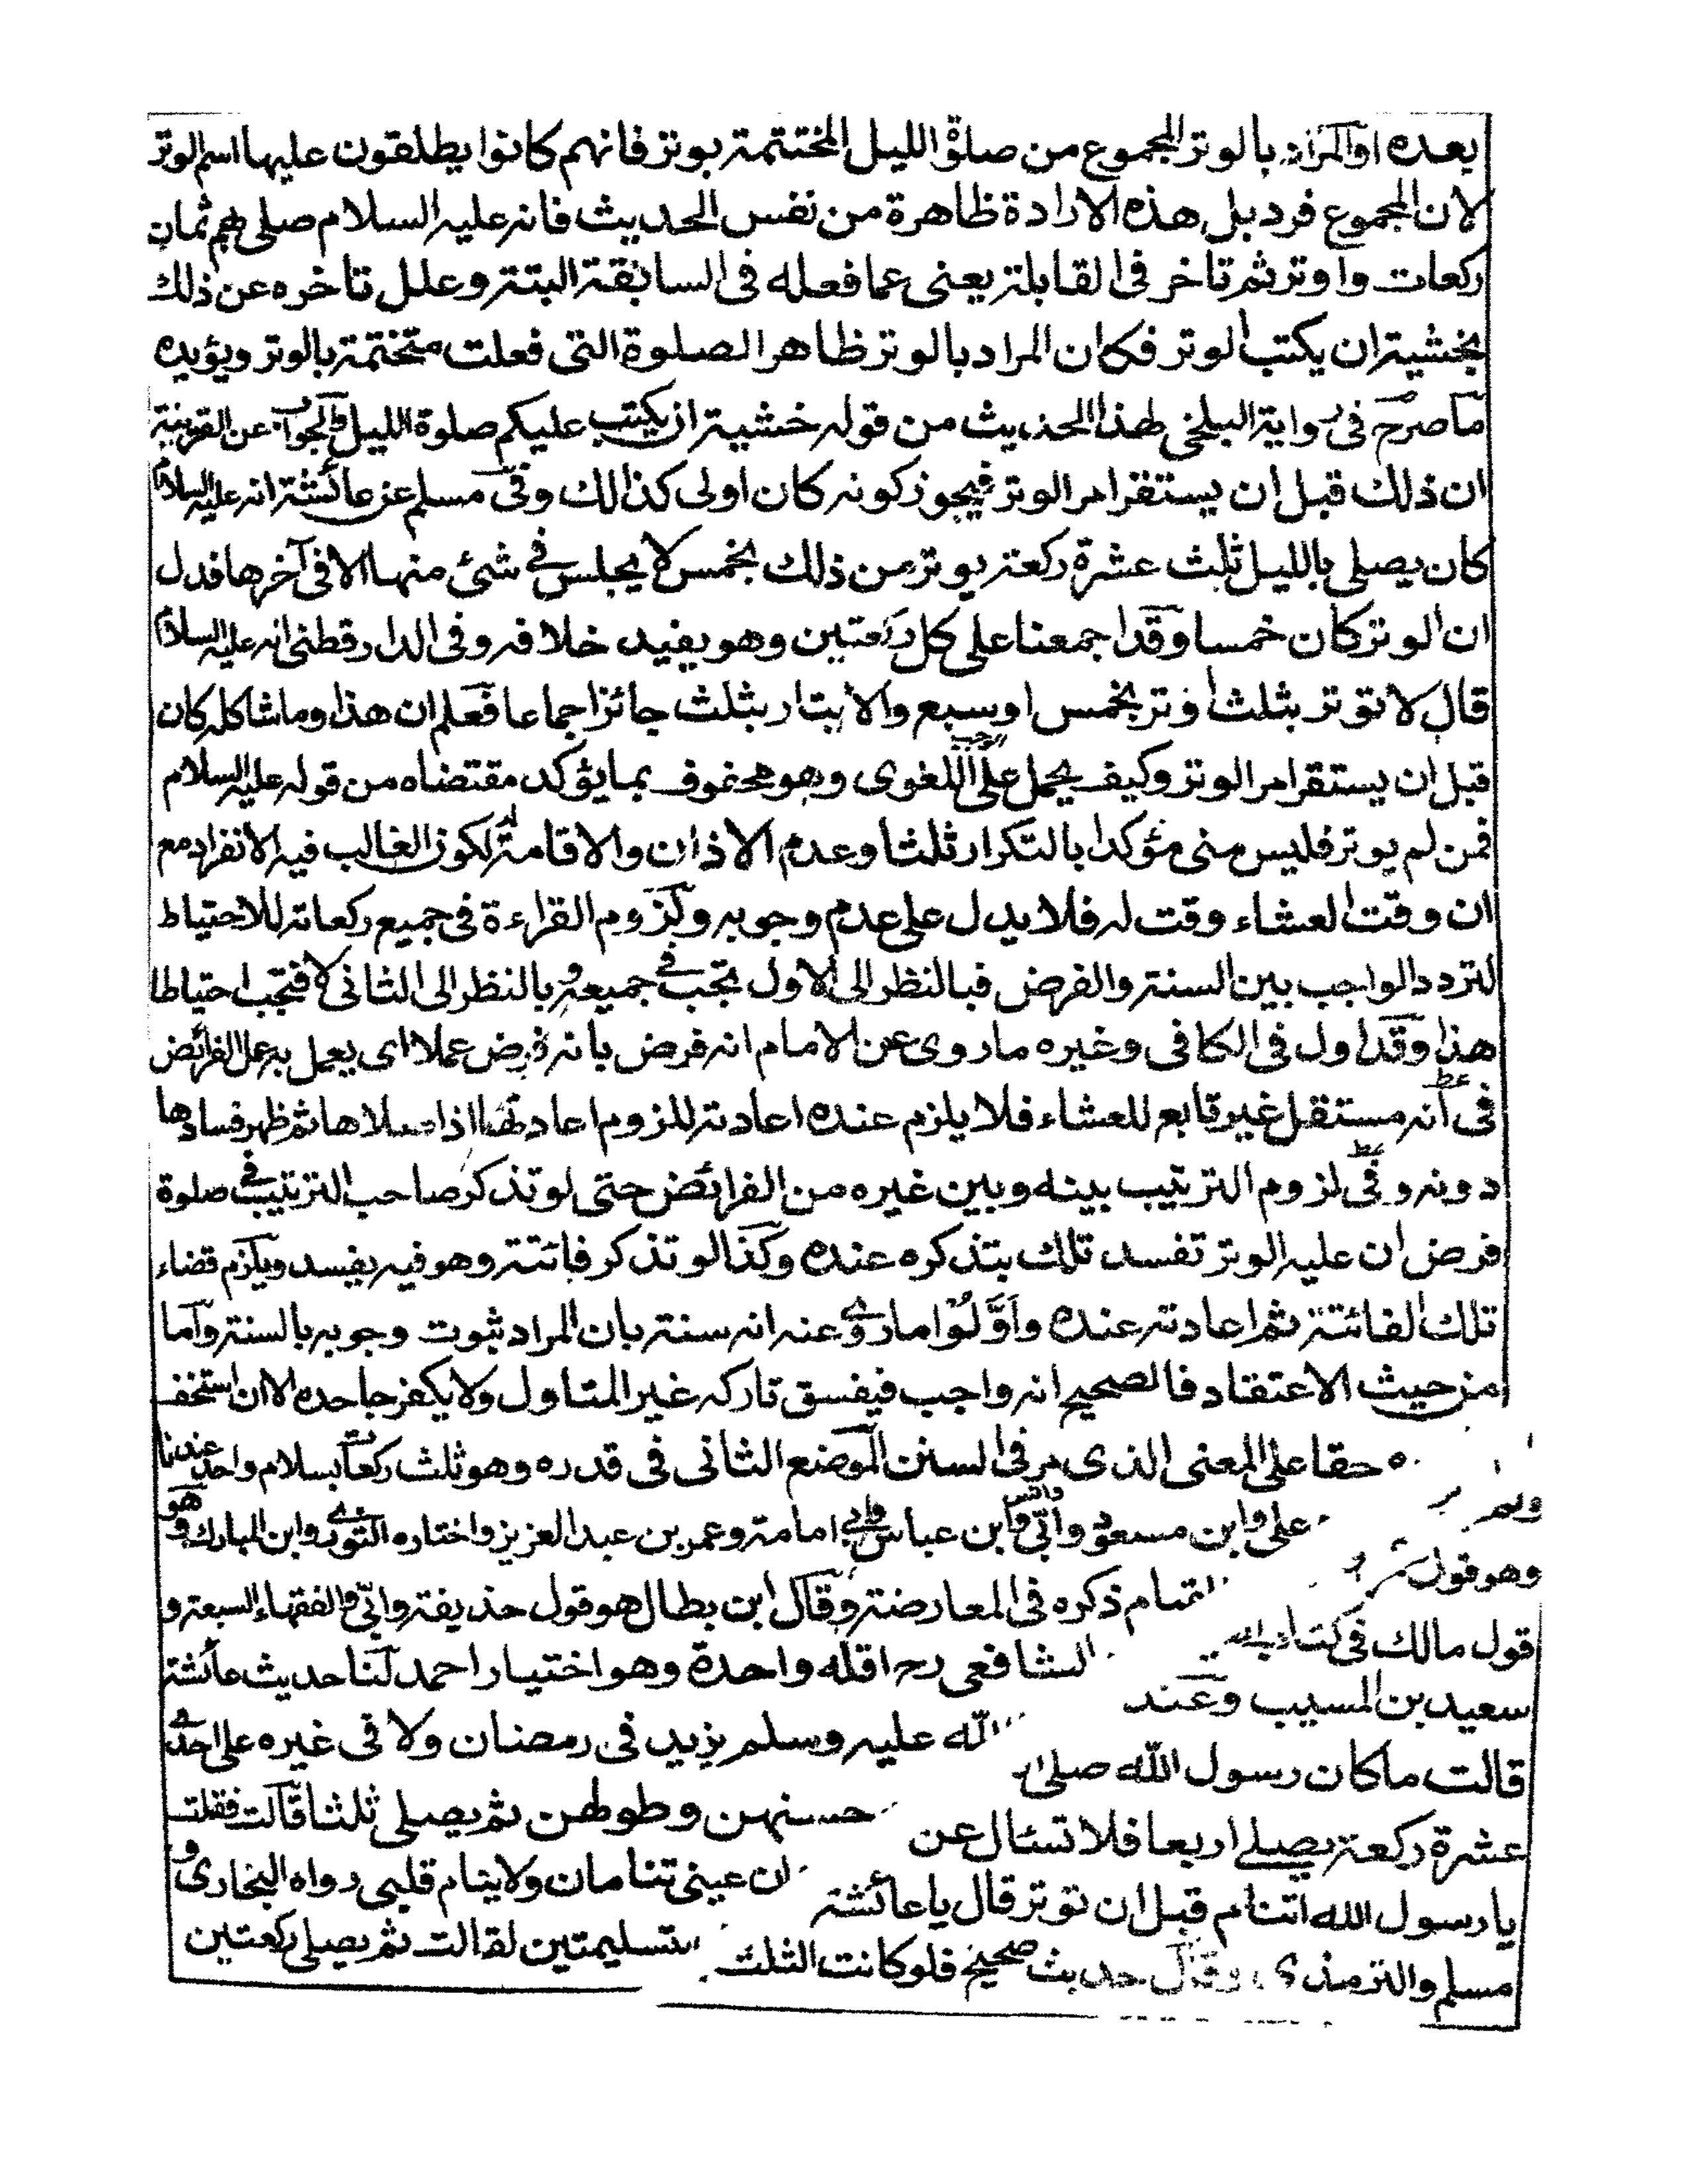 بعده او المراد بالوتر المجموع من صلوة الليل المختتمة بوتر فانهم كانوا يطلقون عليها اسم الوتر
لان المجموع فرد بل هذه الارادة ظاهرة من نفس الحديث فانه عليه السلام صلى بهم ثمان
ركعات واوتر ثم تاخر في القابلة يعني عما فعله في السابقة البتة وعلل تاخره عن ذلك
بخشية ان يكتب الوتر فكان المراد بالوتر ظاهرا الصلوة التي فعلت مختتمة بالوتر ويؤيده
ما صرح في رواية البلخي لهذا الحديث من قوله خشية ان يكتب عليكم صلوة الليل والجواب عن القرينة
ان ذلك قبل ان يستقر امر الوتر فيجوز كونه كان اولى كذالك وفي مسلم عن عائشة انه عليه السلام
كان يصلي بالليل ثلث عشرة ركعة يوتر من ذلك بخمس لا يجلس في شئ منها الا في آخرها فدل
ان الوتر كان خمسا وقد اجمعنا على كل ركعتين وهو يفيد خلافه وفي الدارقطني انه عليه السلام
قال لا توتر بثلث اوتر بخمس او سبع والايتار بثلث جائز اجماعا فعلم ان هذا وما شاكله كان
قبل ان يستقر امر الوتر وكيف يحمل على اللغوي وهو محفوف بما يؤكد مقتضاه من قوله عليه السلام
فمن لم يوتر فليس مني مؤكدا بالتكرار ثلثا وعدم الاذان والاقامة له لكون الغالب فيه الانفراد مع
ان وقت العشاء وقت له فلا يدل على عدم وجوبه ولزوم القراءة في جميع ركعاته للاحتياط
لتردد الواجب بين السنة والفرض فبالنظر الى الاول تجب في جميعه وبالنظر الى الثاني لا فتجب احتياطا
هذا وقد اول في الكافي وغيره ما روى عن الامام انه فرض بانه فرض عملا اى يعمل به عمل الفرائض
في انه مستقل غير تابع للعشاء فلا يلزم عنده اعادته للزوم اعادتها اذا صلاها ثم ظهر فسادها
دونه وفي لزوم الترتيب بينه وبين غيره من الفرائض حتى لو تذكر صاحب الترتيب في صلوة
فرض ان عليه الوتر تفسد تلك بتذكره عنده وكذا لو تذكر فائتة وهو فيه يفسد ويلزم قضاء
تلك الفائتة ثم اعادته عنده واولوا ما روى عنه انه سنة بان المراد ثبوت وجوبه بالسنة واما
من حيث الاعتقاد فالصحيح انه واجب فيفسق تاركه غير المتاول ولا يكفر جاحده الا ان استخف
ه حقا على المعنى الذى مر في السنن الموضع الثاني في قدره وهو ثلث ركعات بسلام واحد عندنا
على وابن مسعود وابي وانس وابن عباس وابي امامة وعمر بن عبد العزيز واختاره الثورى وابن المبارك وهو
وهو قول ذكره في المعارضة وقال ابن بطال هو قول حذيفة وابي والفقهاء السبعة و
قول مالك في كتاب الشافعي رح اقله واحدة وهو اختيار احمد لنا حديث عائشة
سعيد بن المسيب وعند الله عليه وسلم يزيد في رمضان ولا في غيره على احدى
قالت ما كان رسول الله صلى حسنهن وطولهن ثم يصلي ثلثا قالت فقلت
عشرة ركعة يصلي اربعا فلا تسئال عن ان عيني تنامان ولا ينام قلبي رواه البخارى و
يا رسول الله اتنام قبل ان توتر قال يا عائشة بتسليمتين لقالت ثم يصلي ركعتين
مسلم والترمذى وقال حديث صحيح فلو كانت الثلث